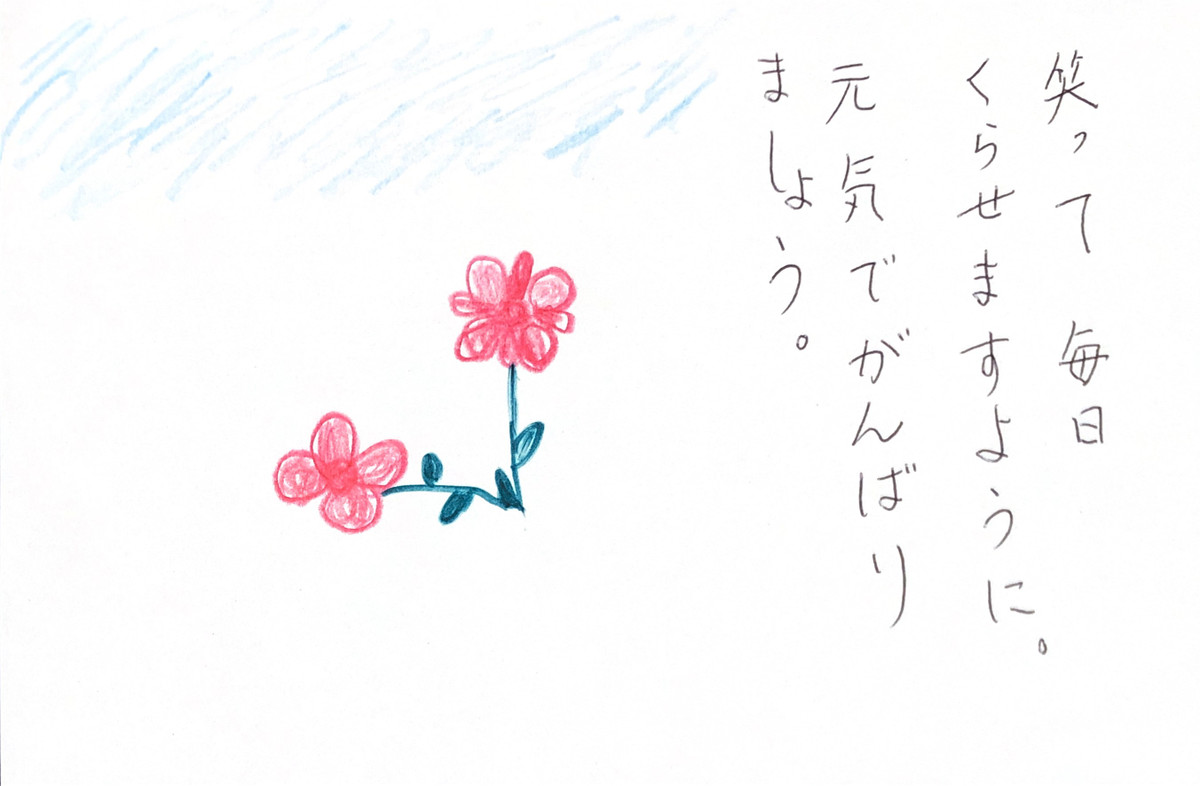 笑って 毎日
くらせますように。
元気でがんばり
ましょう。